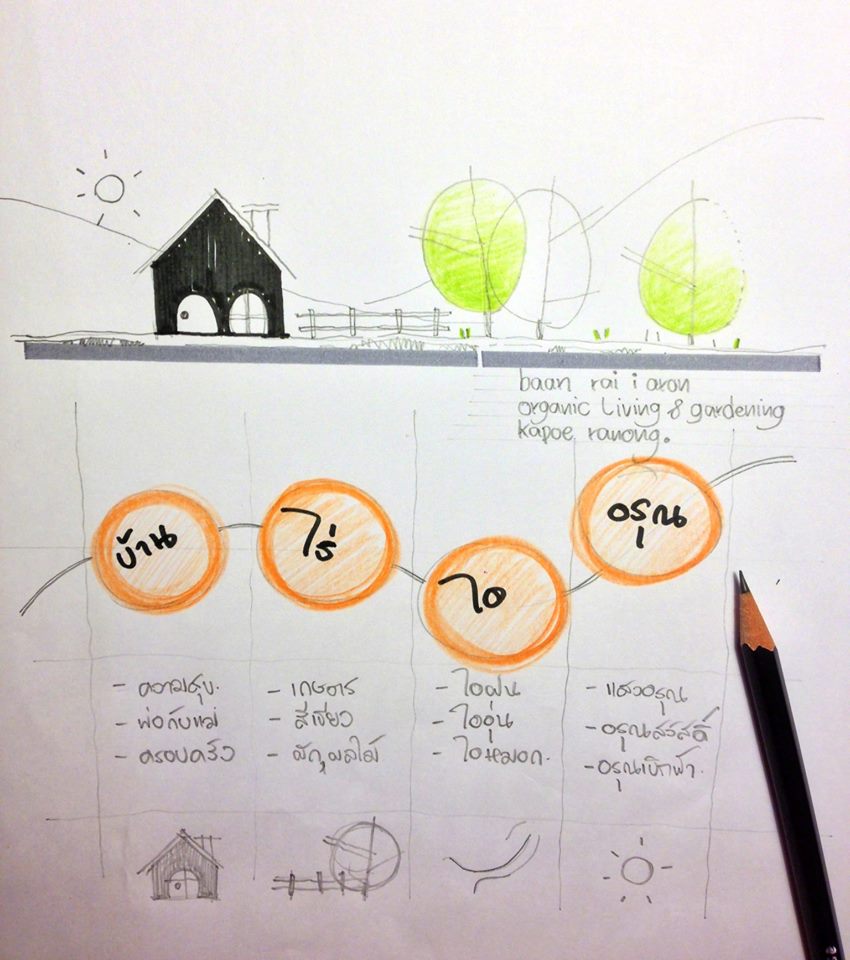 baan rai i aron
organic living & gardening
kapoe ranong.
บ้าน
ไร่
ไอ
อรุณ
- ความสุข.
- พ่อกับแม่
- ครอบครัว
- เกษตร
- สีเขียว
- ผัก,ผลไม้
- ไอฝน
- ไออุ่น
- ไอหมอก.
- แสงอรุณ
- อรุณสวัสดิ์
- อรุณเบิกฟ้า.